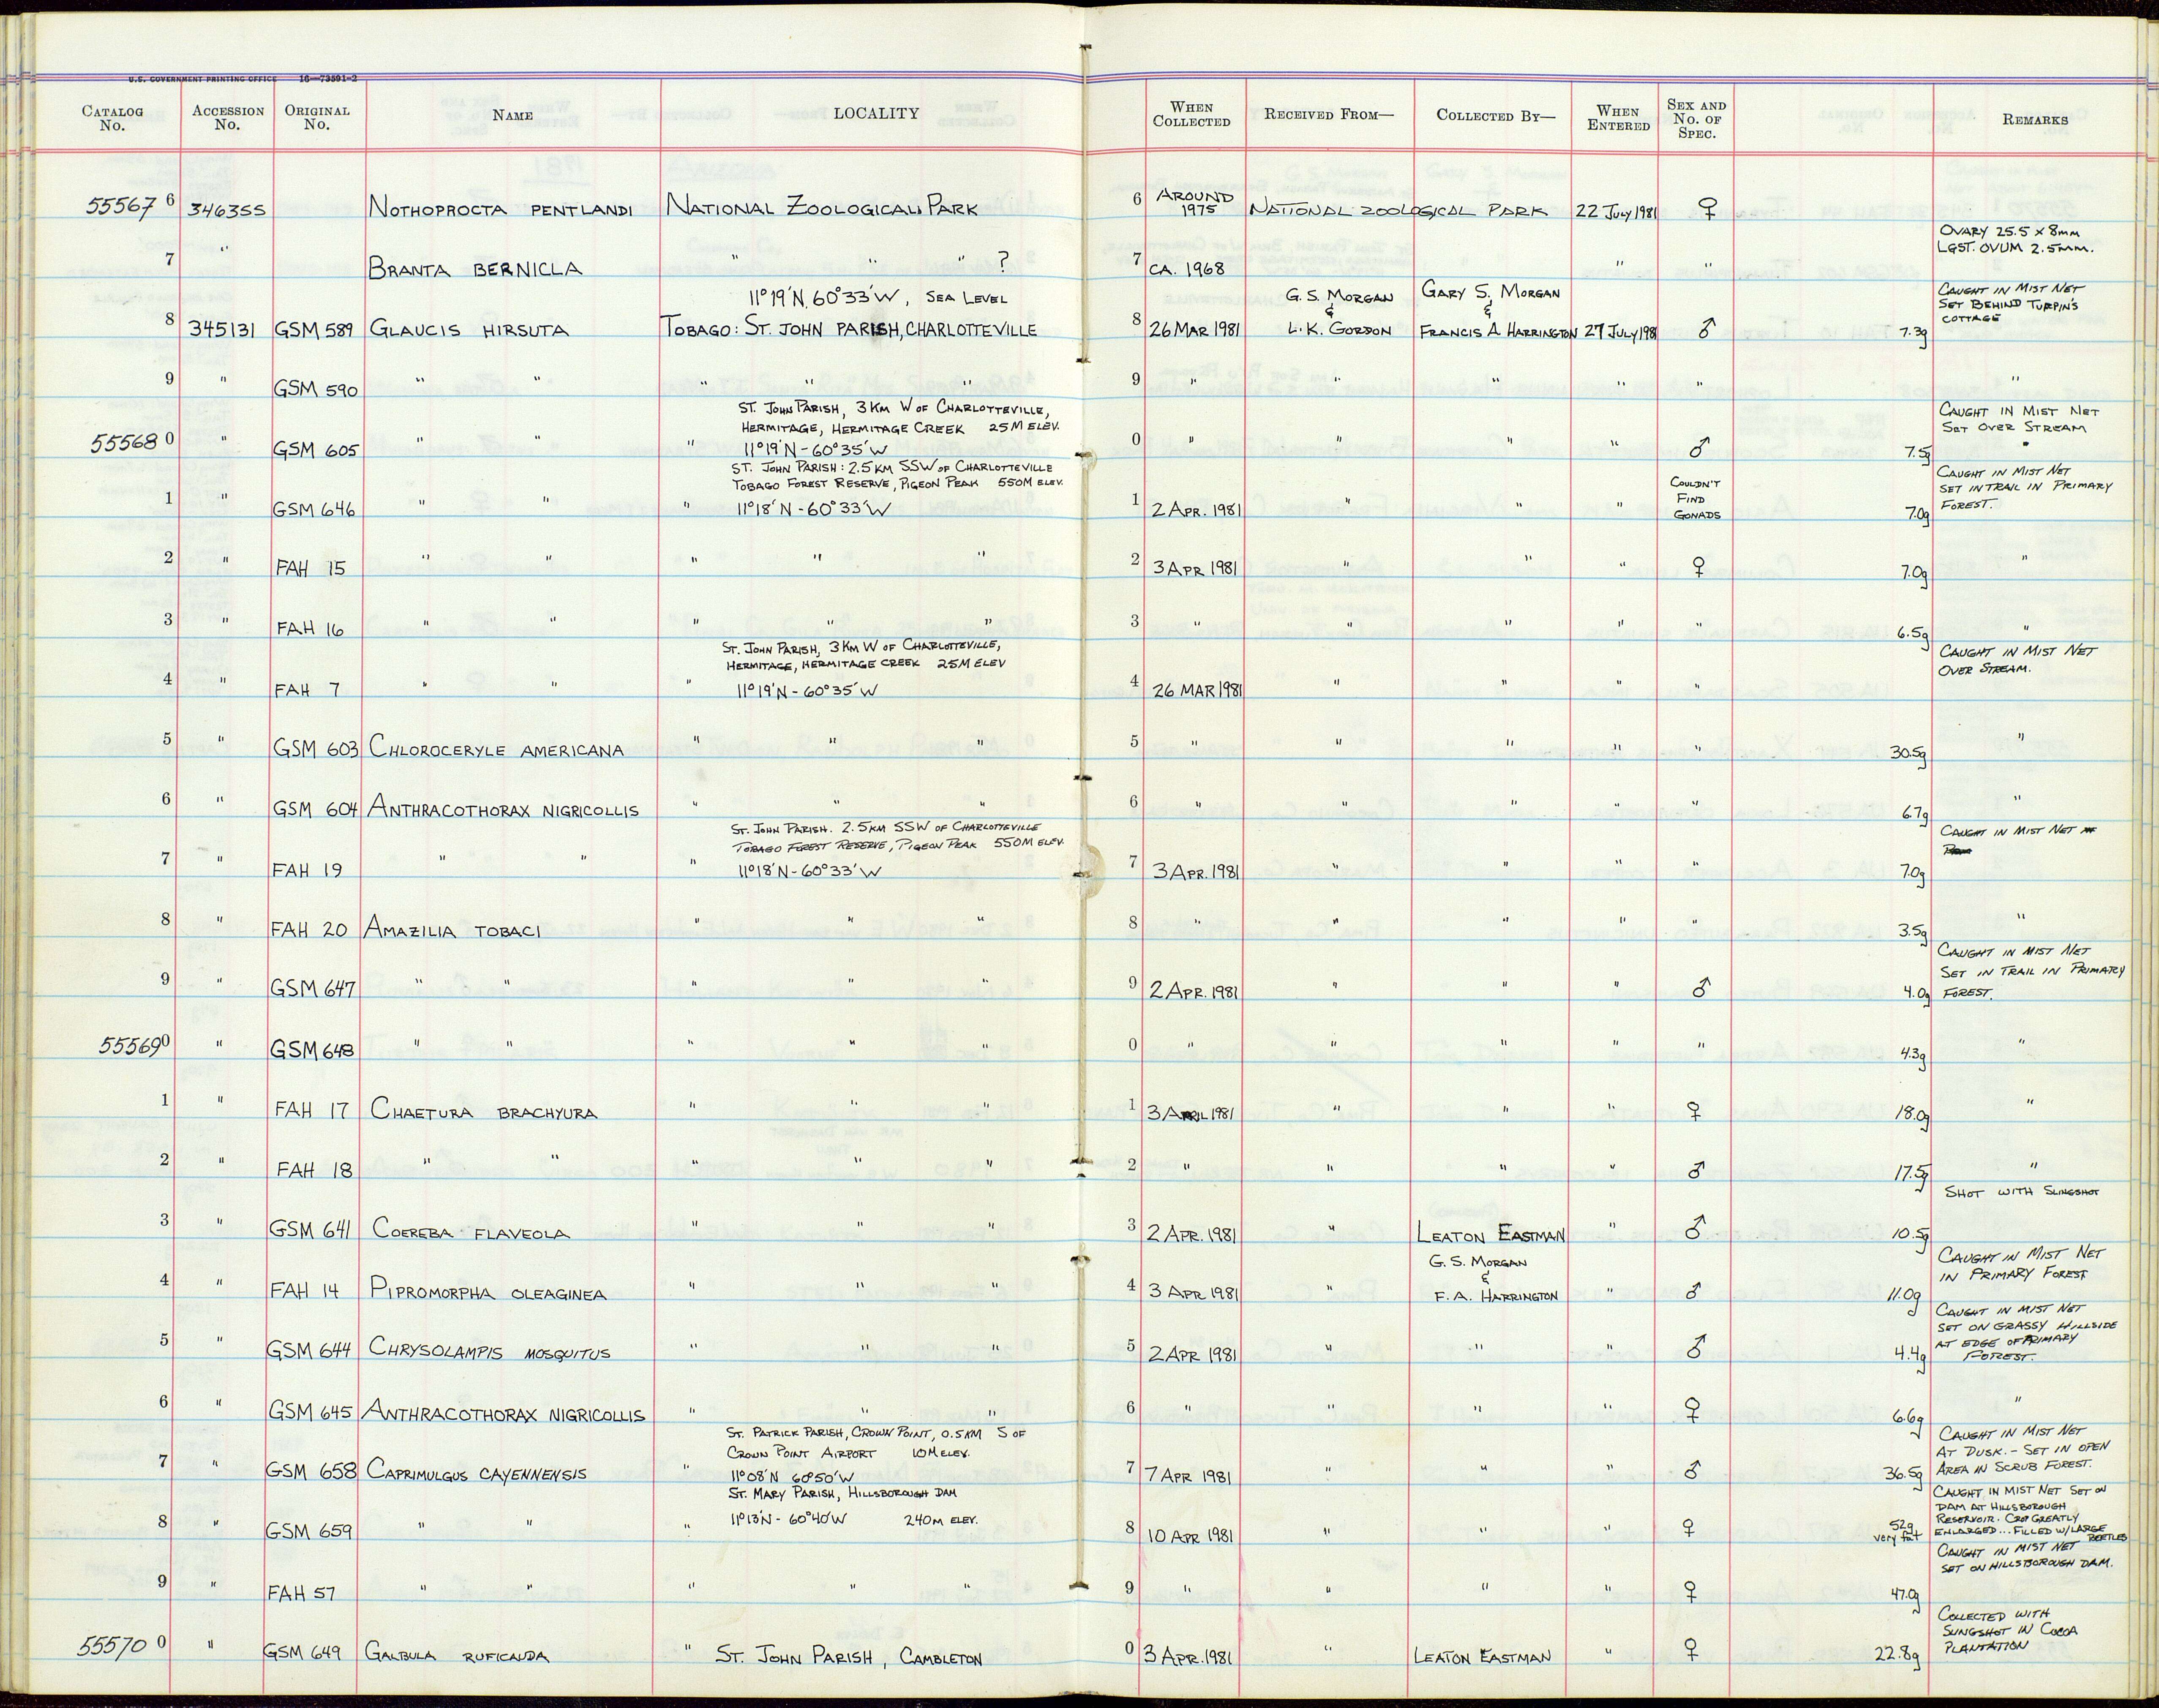 U.S. GOVERNMENT PRINTING OFFICE 16—73591-2
CATALOG No. ACCESSION No. ORIGINAL No. NAME LOCALITY WHEN COLLECTED RECEIVED FROM— COLLECTED BY— WHEN ENTERED SEX AND No. OF SPEC. REMARKS
55567 6 346355 NOTHOPROCTA PENTLANDI NATIONAL ZOOLOGICAL PARK 6 AROUND 1975 NATIONAL ZOOLOGICAL PARK 22 JULY 1981 ♀
OVARY 25.5 x 8mm
LGST. OVUM 2.5mm.
7 " BRANTA BERNICLA " " " ? 7 CA. 1968 " " " " "
11°19'N, 60°33'W, SEA LEVEL G.S. MORGAN & GARY S. MORGAN & CAUGHT IN MIST NET
SET BEHIND TURPIN'S
COTTAGE
8 345131 GSM 589 GLAUCIS HIRSUTA TOBAGO: ST. JOHN PARISH, CHARLOTTEVILLE 8 26 MAR 1981 L.K. GORDON FRANCIS A HARRINGTON 27 JULY 1981 ♂ 7.3g
9 " GSM 590 " " " " " 9 " " " " " "
ST. JOHN PARISH, 3 KM W OF CHARLOTTEVILLE,
HERMITAGE, HERMITAGE CREEK 25M ELEV.
CAUGHT IN MIST NET
SET OVER STREAM
55568 0 " GSM 605 " " " 11°19'N - 60°35'W 0 " " " " ♂ 7.5g
ST. JOHN PARISH: 2.5 KM SSW OF CHARLOTTEVILLE
TOBAGO FOREST RESERVE, PIGEON PEAK 550M ELEV.
COULDN'T FIND GONADS
CAUGHT IN MIST NET
SET IN TRAIL IN PRIMARY
FOREST.
1 " GSM 646 " " " 11°18'N - 60°33'W 1 2 APR. 1981 " " " 7.0g
2 " FAH 15 " " " " " 2 3 APR 1981 " " " ♀ 7.0g "
3 " FAH 16 " " " " " 3 " " " " " 6.5g "
ST. JOHN PARISH, 3 KM W OF CHARLOTTEVILLE,
HERMITAGE, HERMITAGE CREEK 25M ELEV
CAUGHT IN MIST NET
OVER STREAM.
4 " FAH 7 " " " 11°19'N - 60°35'W 4 26 MAR 1981 " " " "
5 " GSM 603 CHLOROCERYLE AMERICANA " " " 5 " " " " " 30.5g "
6 " GSM 604 ANTHRACOTHORAX NIGRICOLLIS " " " 6 " " " " " 6.7g "
ST. JOHN PARISH. 2.5 KM SSW OF CHARLOTTEVILLE
TOBAGO FOREST RESERVE, PIGEON PEAK 550M ELEV.
CAUGHT IN MIST NET
7 " FAH 19 " " " 11°18'N - 60°33'W 7 3 APR. 1981 " " " " 7.0g
8 " FAH 20 AMAZILIA TOBACI " " " 8 " " " " " 3.5g "
CAUGHT IN MIST NET
SET IN TRAIL IN PRIMARY
FOREST.
9 " GSM 647 " " " " " 9 2 APR. 1981 " " " ♂ 4.0g
55569 0 " GSM 648 " " " " " 0 " " " " " 4.3g "
1 " FAH 17 CHAETURA BRACHYURA " " " 1 3 APRIL 1981 " " " ♀ 18.0g "
2 " FAH 18 " " " " " 2 " " " " ♂ 17.5g "
SHOT WITH SLINGSHOT
3 " GSM 641 COEREBA FLAVEOLA " " " 3 2 APR. 1981 " LEATON EASTMAN " ♂ 10.5g
G.S. MORGAN & CAUGHT IN MIST NET
IN PRIMARY FOREST
4 " FAH 14 PIPROMORPHA OLEAGINEA " " " 4 3 APR 1981 " F.A. HARRINGTON " ♂ 11.0g
CAUGHT IN MIST NET
SET ON GRASSY HILLSIDE
AT EDGE OF PRIMARY
FOREST.
5 " GSM 644 CHRYSOLAMPIS MOSQUITUS " " " 5 2 APR 1981 " " " ♂ 4.4g
6 " GSM 645 ANTHRACOTHORAX NIGRICOLLIS " " " 6 " " " " ♀ 6.6g "
ST. PATRICK PARISH, CROWN POINT, 0.5 KM S OF
CROWN POINT AIRPORT 10M ELEV.
CAUGHT IN MIST NET
AT DUSK. - SET IN OPEN
AREA IN SCRUB FOREST.
7 " GSM 658 CAPRIMULGUS CAYENNENSIS " 11°08'N 60°50'W 7 7 APR 1981 " " " ♂ 36.5g
ST. MARY PARISH, HILLSBOROUGH DAM
CAUGHT IN MIST NET SET ON
DAM AT HILLSBOROUGH
RESERVOIR. CROP GREATLY
ENLARGED... FILLED W/LARGE
BEETLES
8 " GSM 659 " " " 11°13'N - 60°40'W 240M ELEV. 8 10 APR 1981 " " " ♀ 52g very fat
CAUGHT IN MIST NET
SET ON HILLSBOROUGH DAM.
9 " FAH 57 " " " " " 9 " " " " ♀ 47.0g
COLLECTED WITH
SLINGSHOT IN COCOA
PLANTATION
55570 0 " GSM 649 GALBULA RUFICAUDA " ST. JOHN PARISH, CAMBLETON 0 3 APR. 1981 " LEATON EASTMAN " ♀ 22.8g